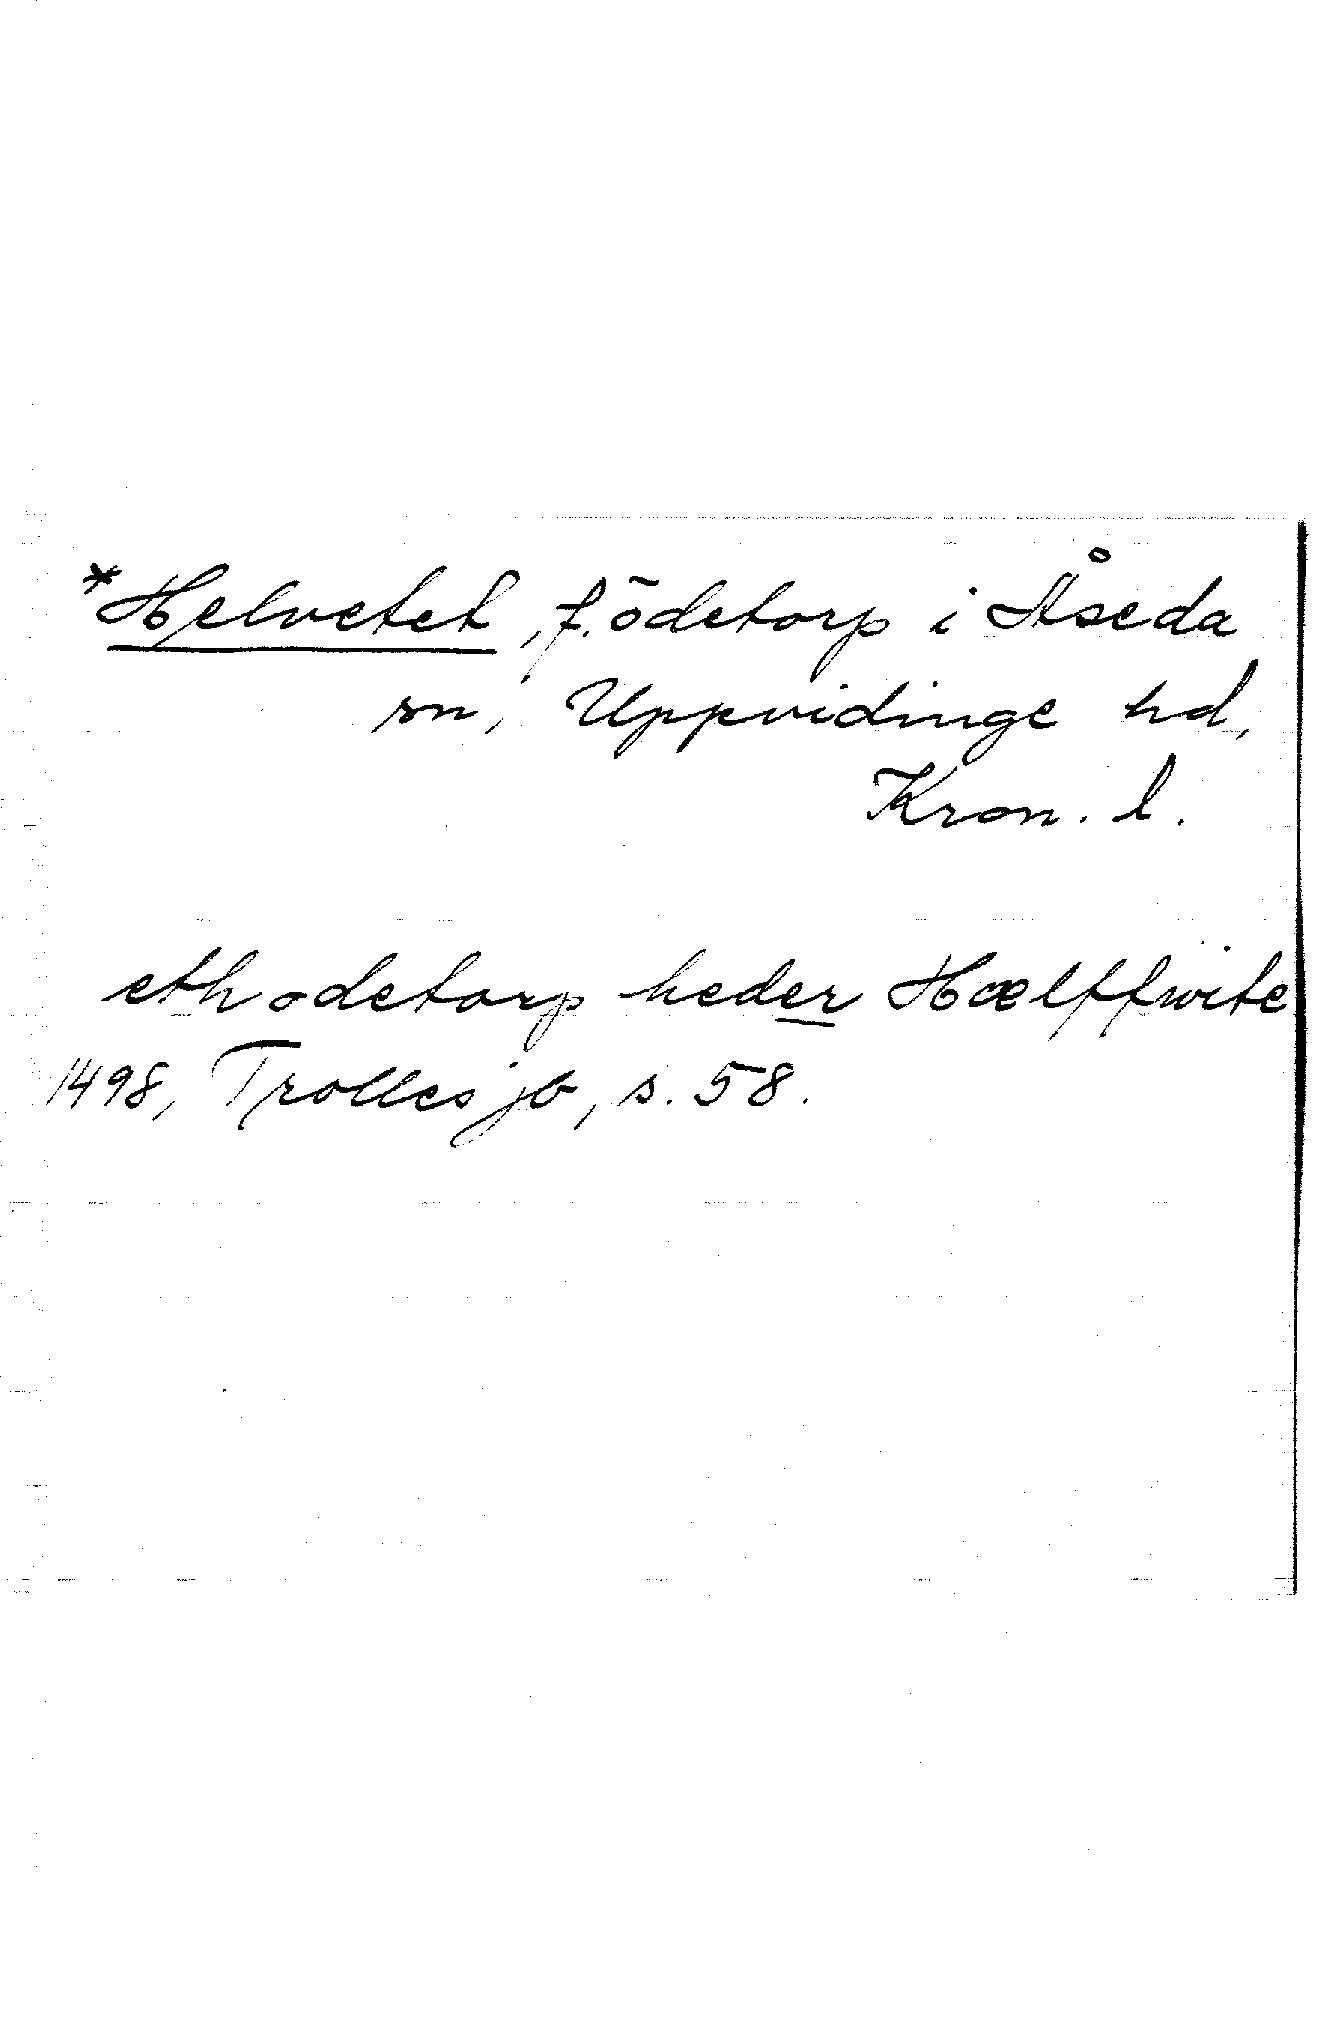 *Helvetet, f. ödetorp i Åseda
sn, Uppvidinge hd,
Kron. l.
eth odetorp heder Hælffwite
1498, Trolles jb, s. 58.